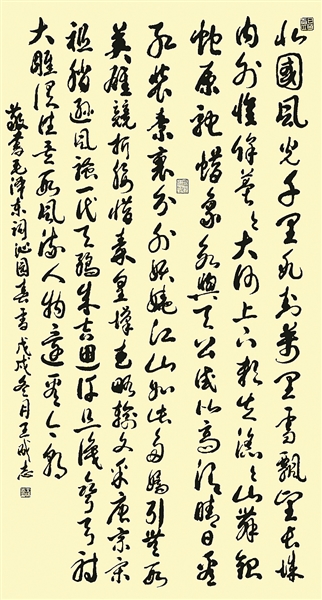 北國風光千里冰封萬里雪飄望长城
内外惟餘莽々大河上下頓失滔々山舞銀
蛇原馳蜡象欲與天公试比高须晴日看
红裝素裹分外妖娆江山如此多嬌引无数
英雄競折腰惜秦皇漢武略輸文采唐宗宋
祖稍遜風骚一代天骄成吉思汗只識彎弓射
大雕俱往矣数風流人物還看今朝
敬書毛泽东詞沁園春雪 戊戌冬月王志